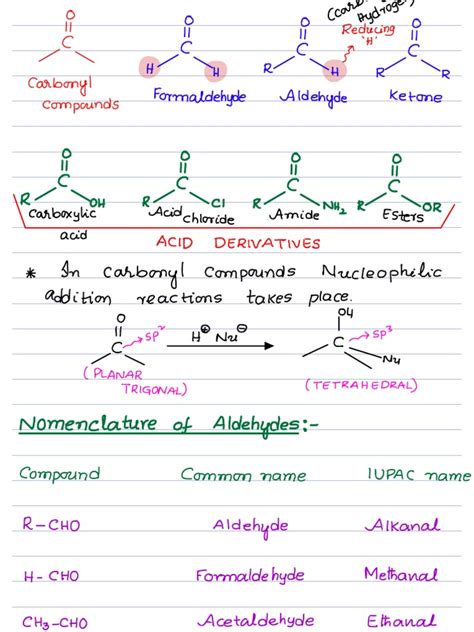 (carbo
Hydrogen
Reducing
'H'
O O O O
C C C C
H H R H R R
Carbonyl Compounds Formaldehyde Aldehyde Ketone
O O O O
C C C C
R OH R Cl R NH2 R OR
Carboxylic acid Acid chloride Amide Esters
ACID DERIVATIVES
* In Carbonyl Compounds Nucleophilic
addition reactions takes place.
O OH
C sp2 H⊕ Nu⊖ C sp3
Nu
(PLANAR TRIGONAL) (TETRAHEDRAL)
Nomenclature of Aldehydes:-
Compound Common name IUPAC name
R-CHO Aldehyde Alkanal
H-CHO Formaldehyde Methanal
CH3-CHO Acetaldehyde Ethanal